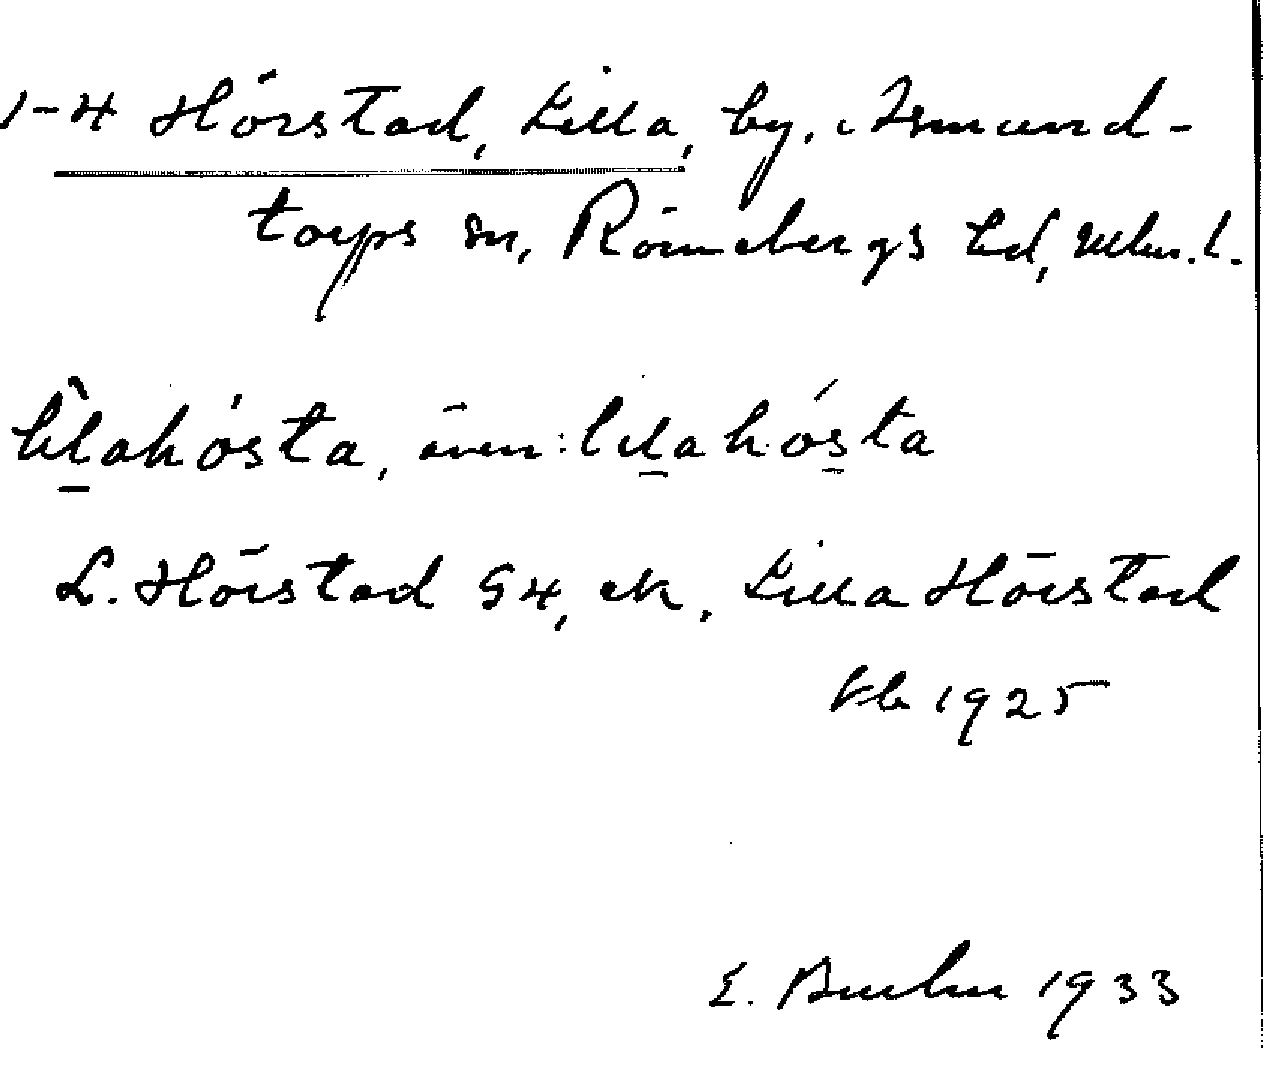 1-4 Hörstad, Lilla, by, Asmund-
torps sn, Rönnebergs hd, Mlm. l.
lìlahósta, även: lilahósta
L. Hörstad G4, ek, Lilla Hörstad
kb 1925
E. 1933